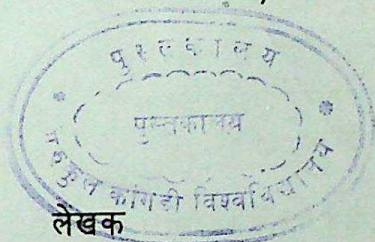 पुस्तकालय
पुस्तकालय
गुरुकुल कांगडी विश्वविद्यालय
लेखक